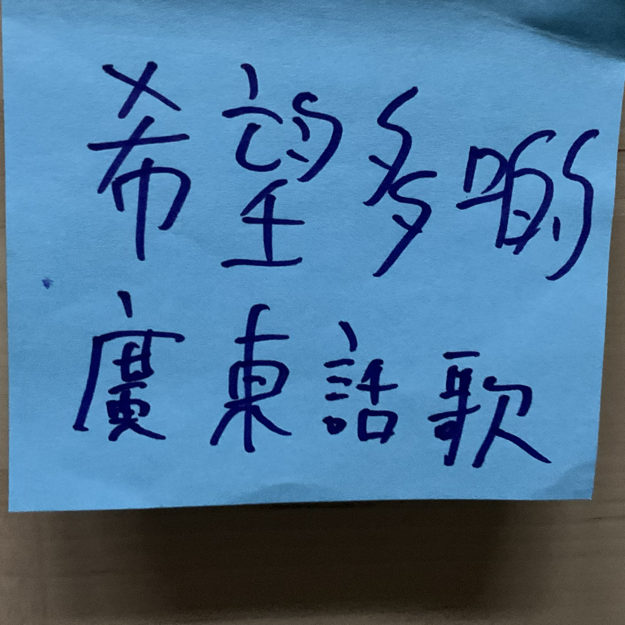 希望多啲
廣東話歌